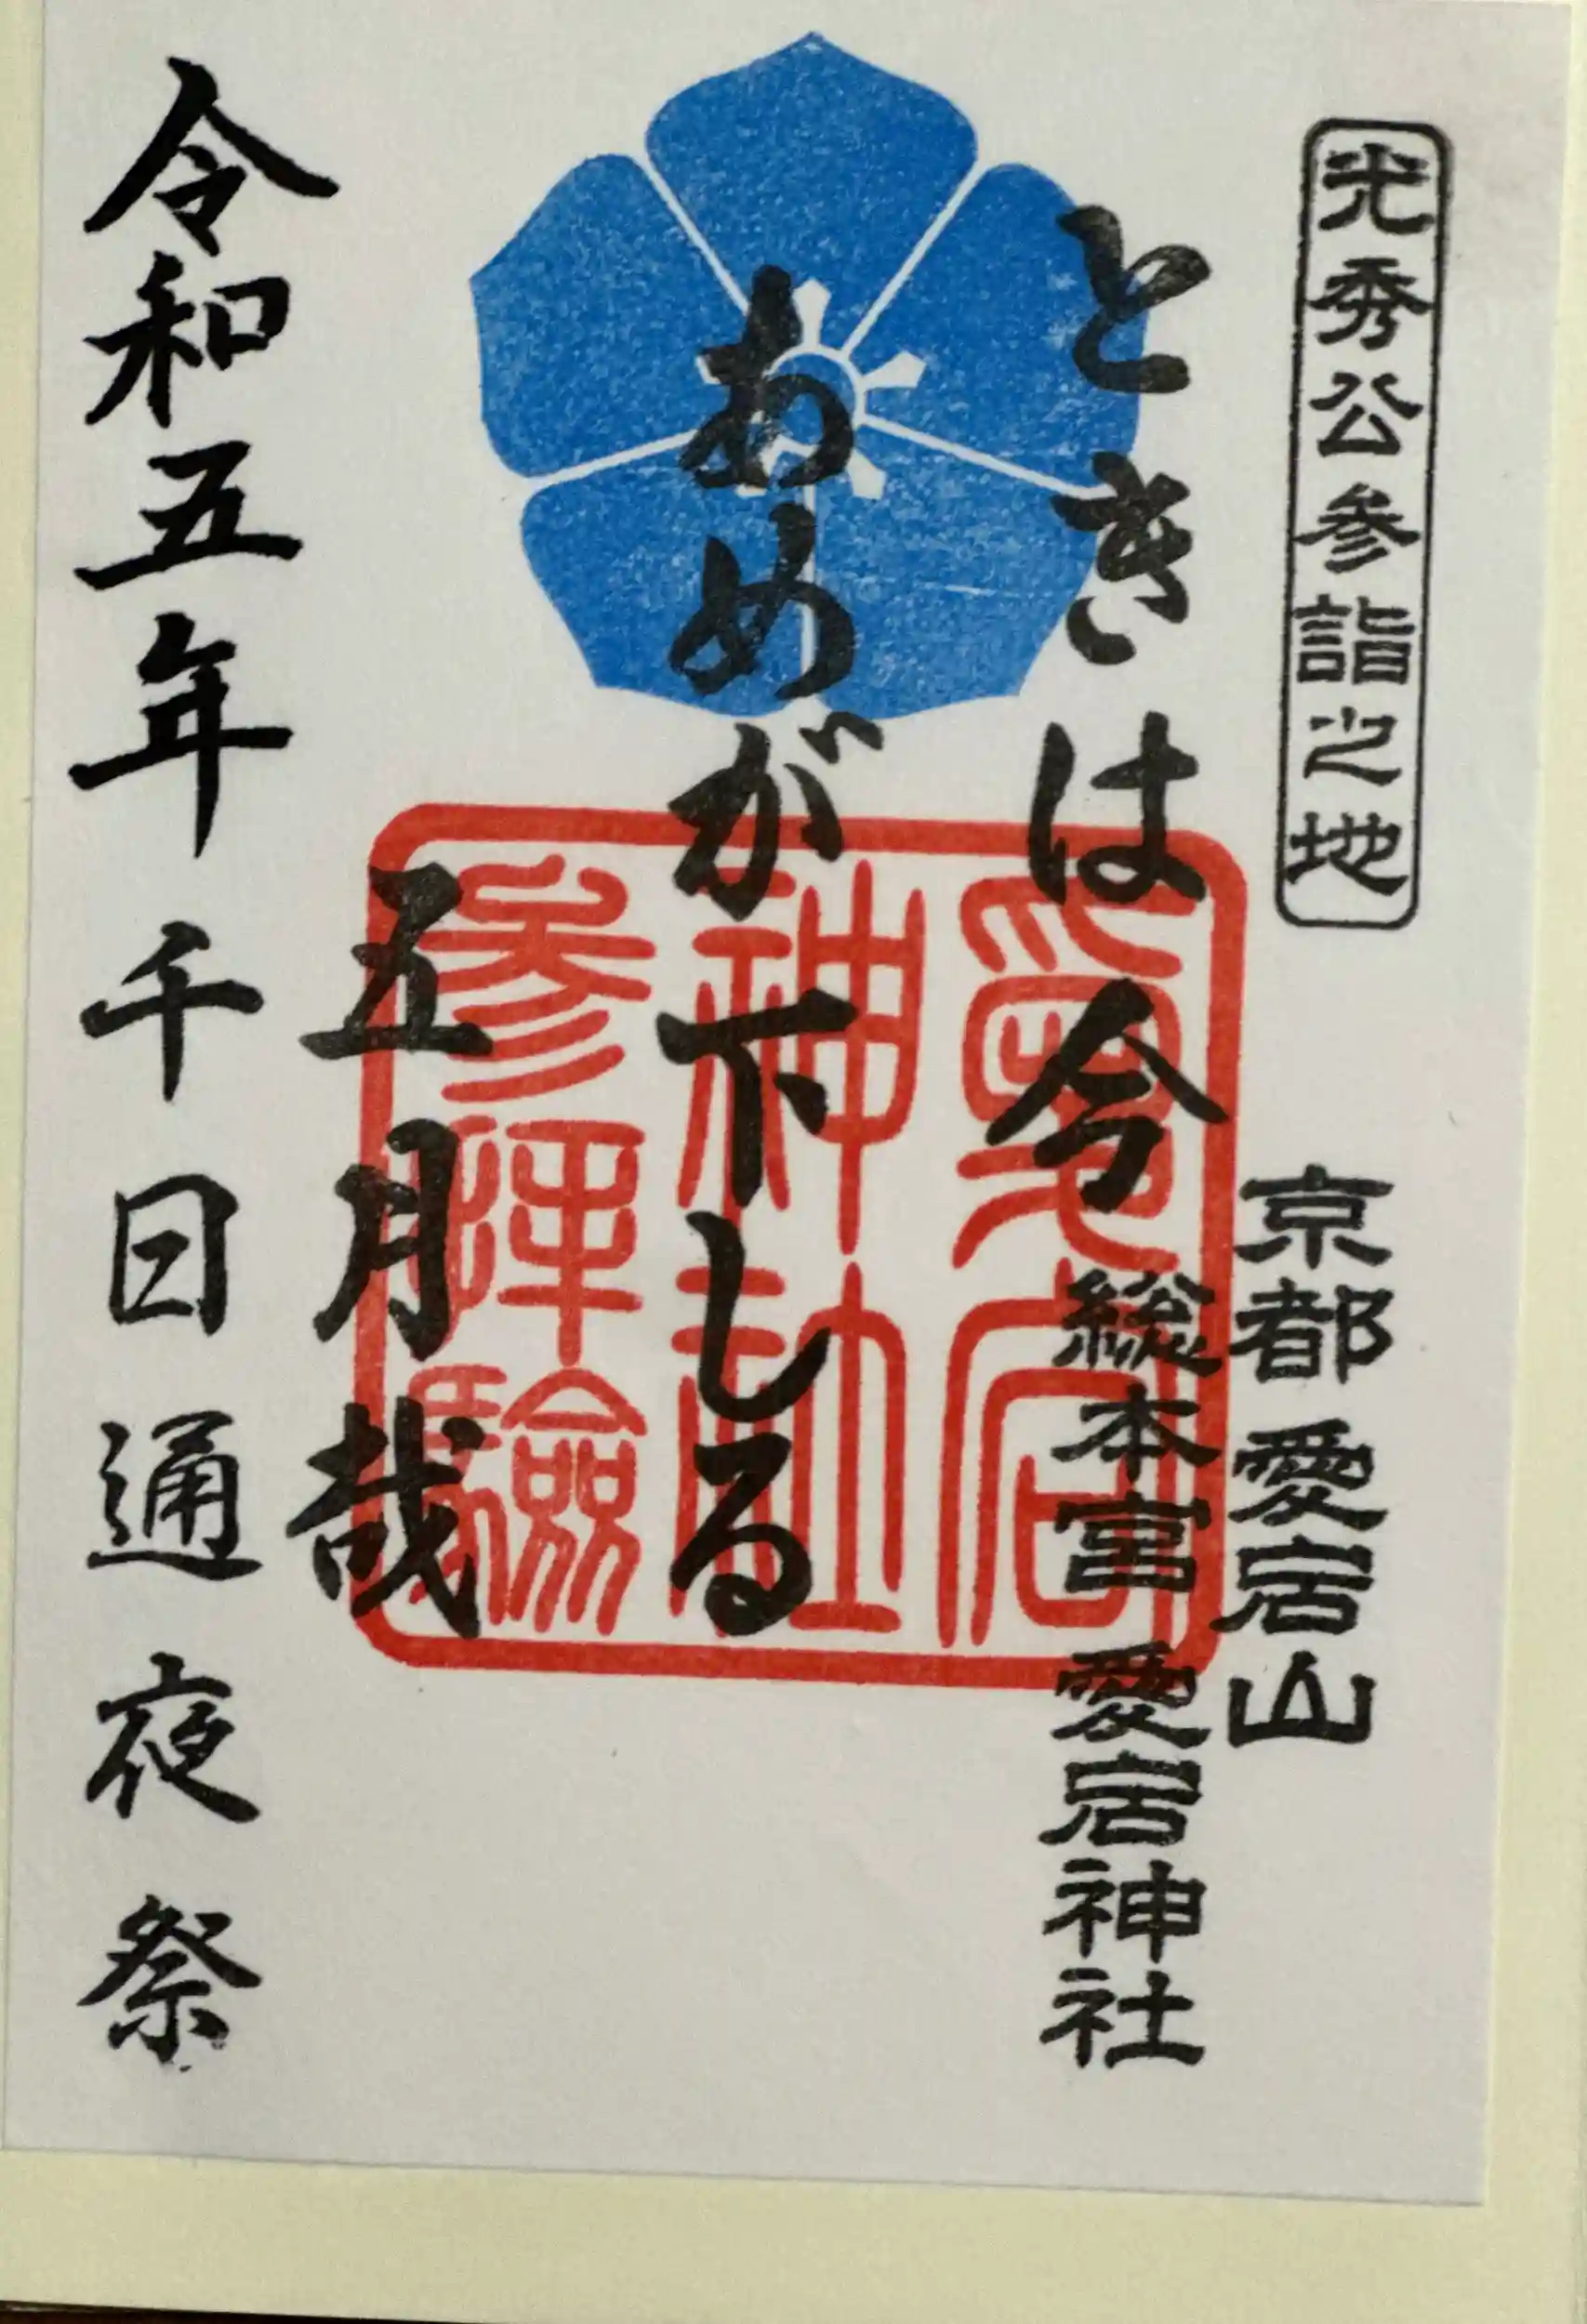 光秀公参詣之地
京都 愛宕山
総本宮 愛宕神社
とき は 今
あめが下しる
五月哉
令和五年 千日通夜祭
愛宕
神社
参拝験